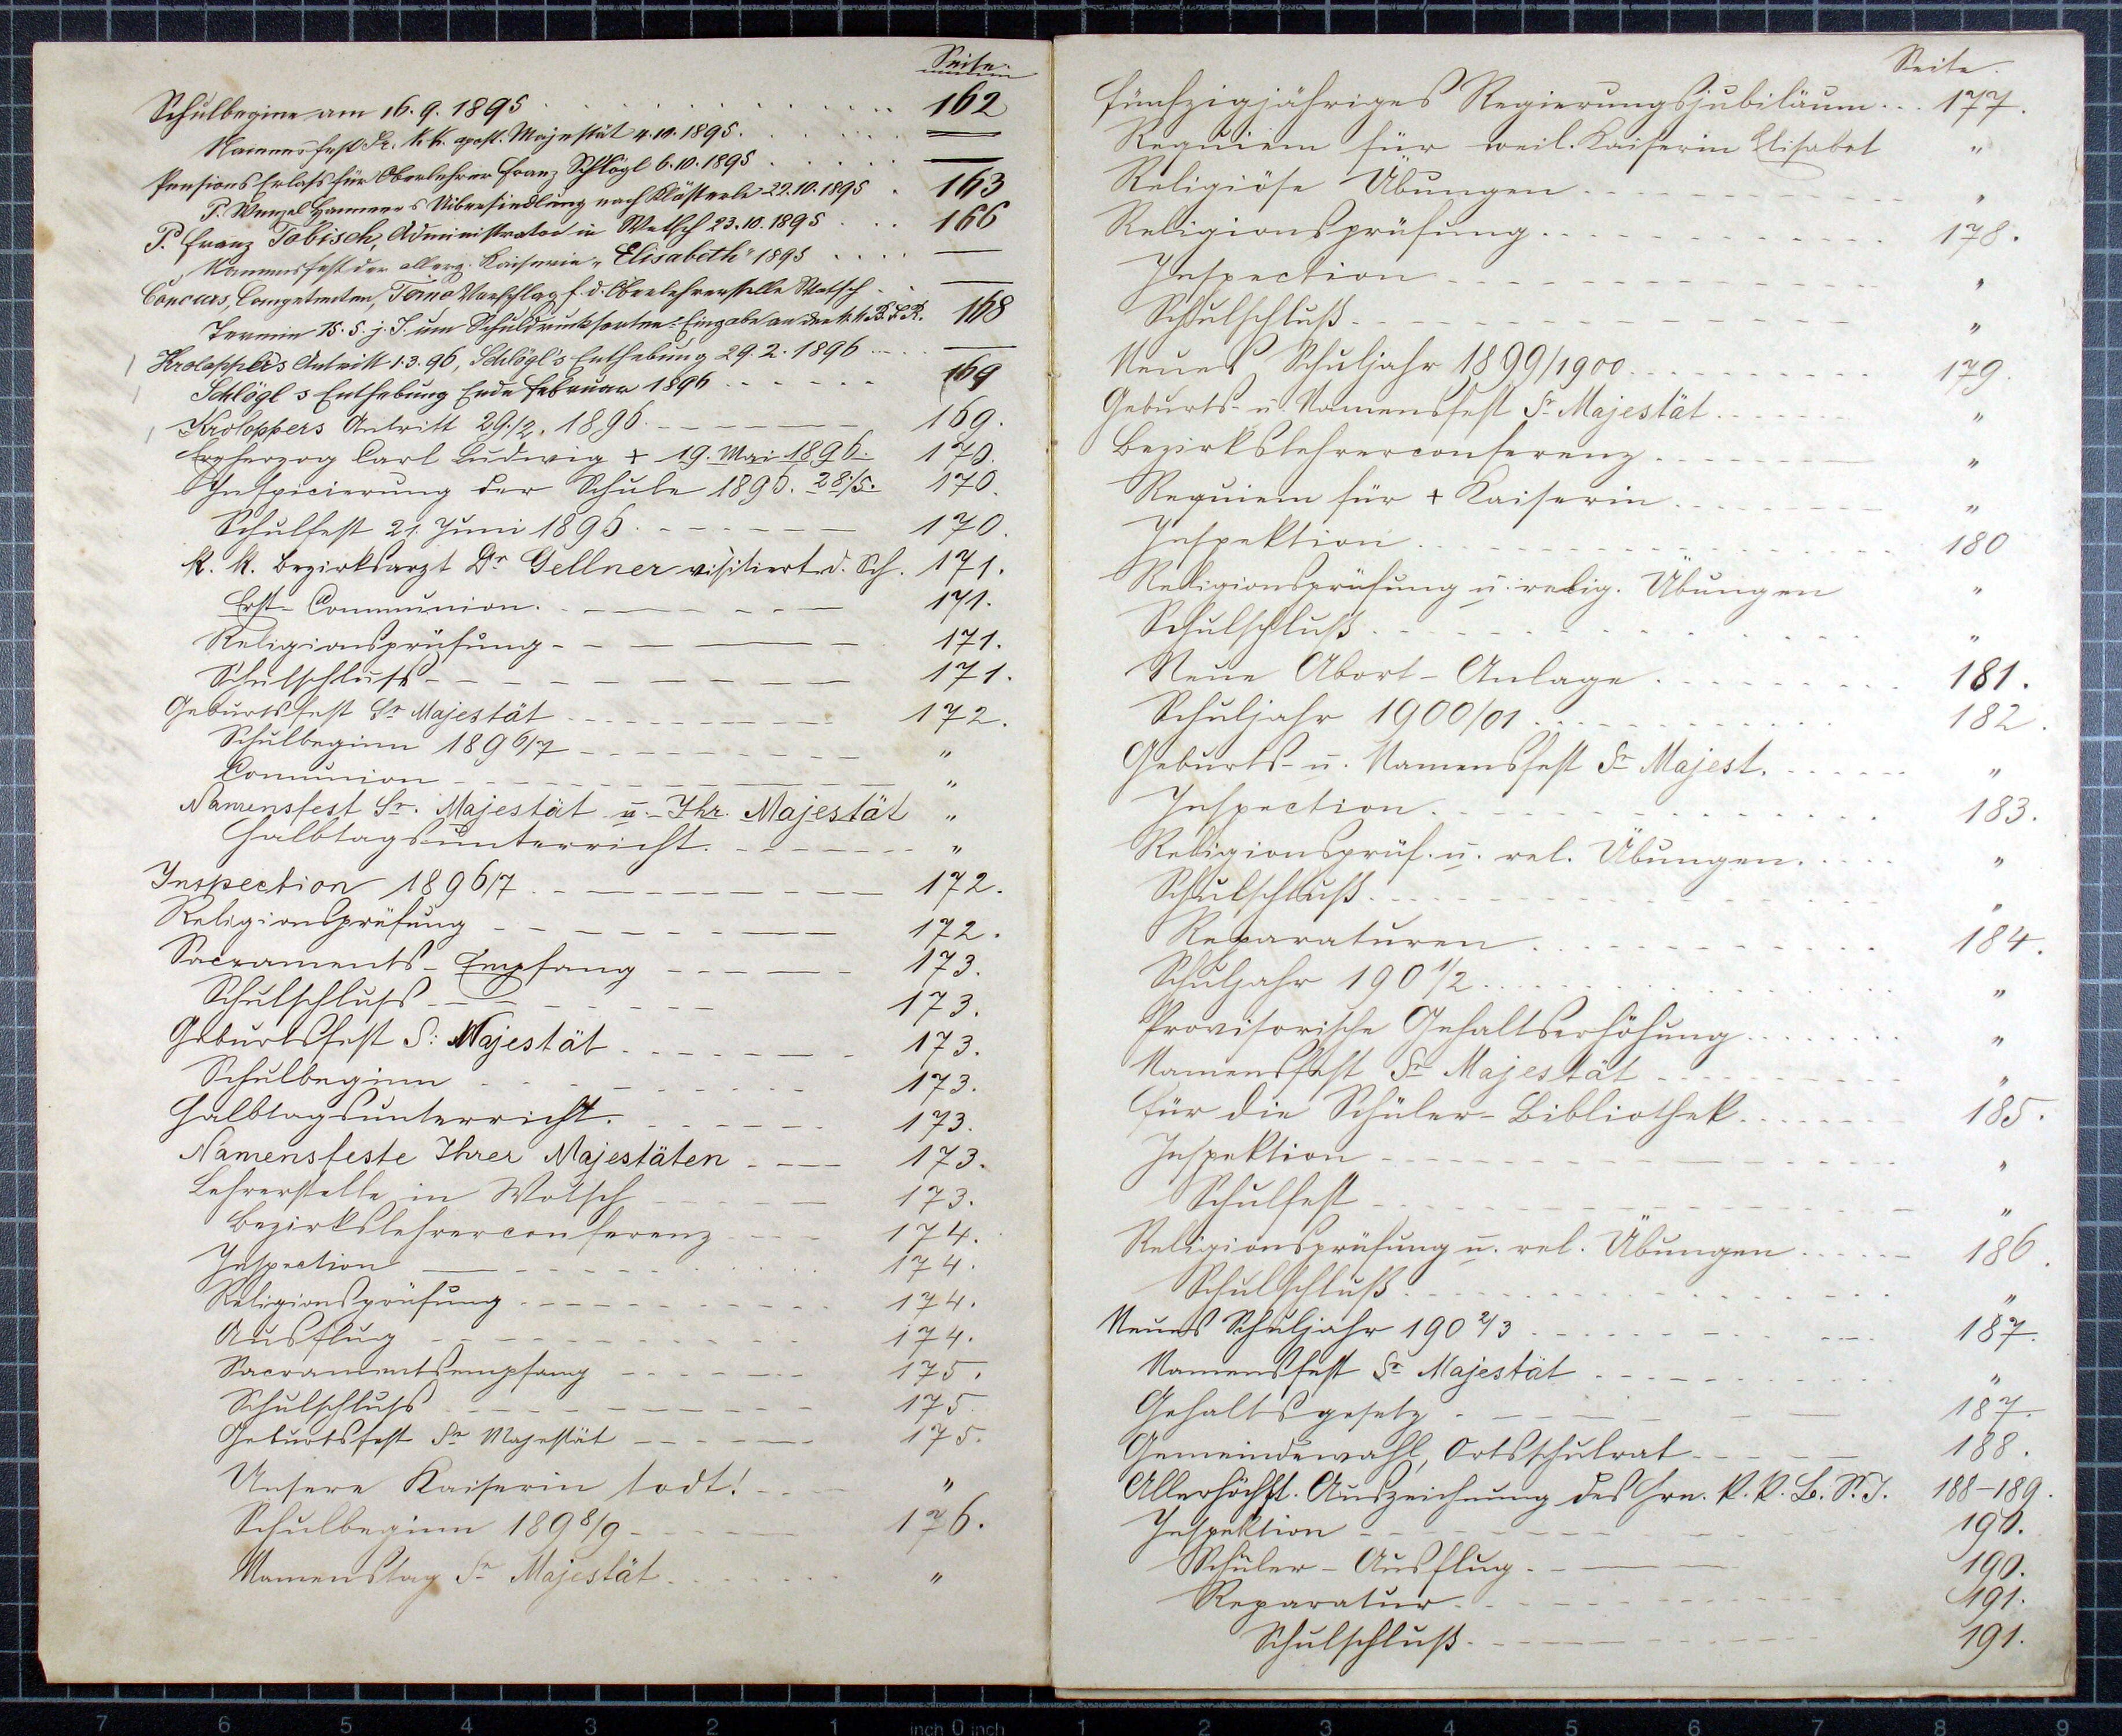 Seite.
Schulbeginn am 16.9.1895 . . . . . . . . . . . 162
Namensfest Sr. k. k. apost. Majestät 4.10.1895. . . . . . —
Pensions Erlaß für Oberlehrer Franz Schlögl 6.10.1895 . . . . . —
P. Wenzel Hammers Uibersiedlung nach Klösterle 22.10.1895 . 163
P. Franz Tobisch, Administrator in Wotsch 23.10.1895 . . . 166
Namensfest der allerg. Kaiserin „Elisabeth" 1895 . . . . —
Concurs, Competenten, Terno Vorschlag f. d. Oberlehrerstelle Wotsch . . —
Termin 15.5. j. J. um Schuldrucksorten-Eingabe an den k. k. B. S. R. 168
Krolopper's Antritt 1.3.96, Schlögl's Enthebung 29.2.1896 . . . —
Schlögl's Enthebung Ende Februar 1896 . . . . . . 169
Kroloppers Antritt 29./2. 1896. - - - - - 169.
Erzherzog Carl Ludwig + 19. Mai 1896. 170.
Inspicierung der Schule 1896. 28./5. 170.
Schulfest 21. Juni 1896. - - - - - - 170.
K. K. Bezirksarzt Dr. Gellner visitiert d. Sch. 171.
Erst-Communion. - - - - - - 171.
Religionsprüfung - - - - - - 171.
Schulschluß - - - - - - - 171.
Geburtsfest Sr. Majestät - - - - - - 172.
Schulbeginn 1896/7 - - - - - - "
Comunion - - - - - - "
Namensfest Sr. Majestät u. Ihr. Majestät "
Halbtagsunterricht. - - - - - - "
Inspection 1896/7. - - - - - - 172.
Religionsprüfung - - - - - - 172.
Sacraments-Empfang - - - - - 173.
Schulschluß - - - - - - 173.
Geburtsfest S: Majestät - - - - - - 173.
Schulbeginn - - - - - - 173.
Halbtagsunterricht. - - - - - - 173.
Namensfeste Ihrer Majestäten - - - 173.
Lehrerstelle in Wotsch - - - - 173.
Bezirkslehrerconferenz - - - 174.
Inspection - - - - - - 174.
Religionsprüfung - - - - - - 174.
Ausflug - - - - - - 174.
Sacramentsempfang - - - - - 175.
Schulschluß - - - - - - 175.
Geburtsfest Sr Majestät - - - - - 175.
Unsere Kaiserin todt! - - - "
Schulbeginn 1898/9 - - - - - 176.
Namenstag Sr Majestät - - - - - "
Seite.
Fünfzigjähriges Regierungsjubiläum . . . 177.
Requiem für weil. Kaiserin Elisabet "
Religiöse Übungen - - - - - - "
Religionsprüfung - - - - - - 178.
Inspection - - - - - - "
Schulschluß - - - - - - "
Neues Schuljahr 1899/1900 . . . . . . 179.
Geburts- u. Namensfest Sr Majestät . . . . . "
Bezirkslehrerconferenz - - - - - "
Requiem für + Kaiserin . . . . . . "
Inspektion . . . . . . . . 180
Religionsprüfung u. relig. Übungen "
Schulschluß . . . . . . . "
Neue Abort-Anlage . . . . . . . 181.
Schuljahr 1900/01 . . . . . . . 182.
Geburts- u. Namensfest Sr Majest. . . . . . "
Inspection . . . . . . . 183.
Religionsprüf. u. rel. Übungen . . . . "
Schulschluß . . . . . . . "
Reparaturen . . . . . . . 184.
Schuljahr 190 1/2 . . . . . . . "
Provisorische Gehaltserhöhung . . . . . "
Namensfest Sr Majestät . . . . . . "
Für die Schüler-Bibliothek . . . . . 185.
Inspektion - - - - - - "
Schulfest - - - - - - "
Religionsprüfung u. rel. Übungen . . . . . 186.
Schulschluß . . . . . . . "
Neues Schuljahr 190 2/3 . . . . . . 187.
Namensfest Sr Majestät . . . . . . "
Gehaltsgesetz - - - - - - 187.
Gemeindewahl, Ortsschulrat - - - - 188.
Allerhöchst. Auszeichnung des Hrn. K. K. B. S. I. 188-189.
Inspektion - - - - - - 190.
Schüler-Ausflug. - - - 190.
Reparatur - - - - - - 191.
Schulschluß - - - - - - 191.
7 6 5 4 3 2 1 inch 0 inch 1 2 3 4 5 6 7 8 9